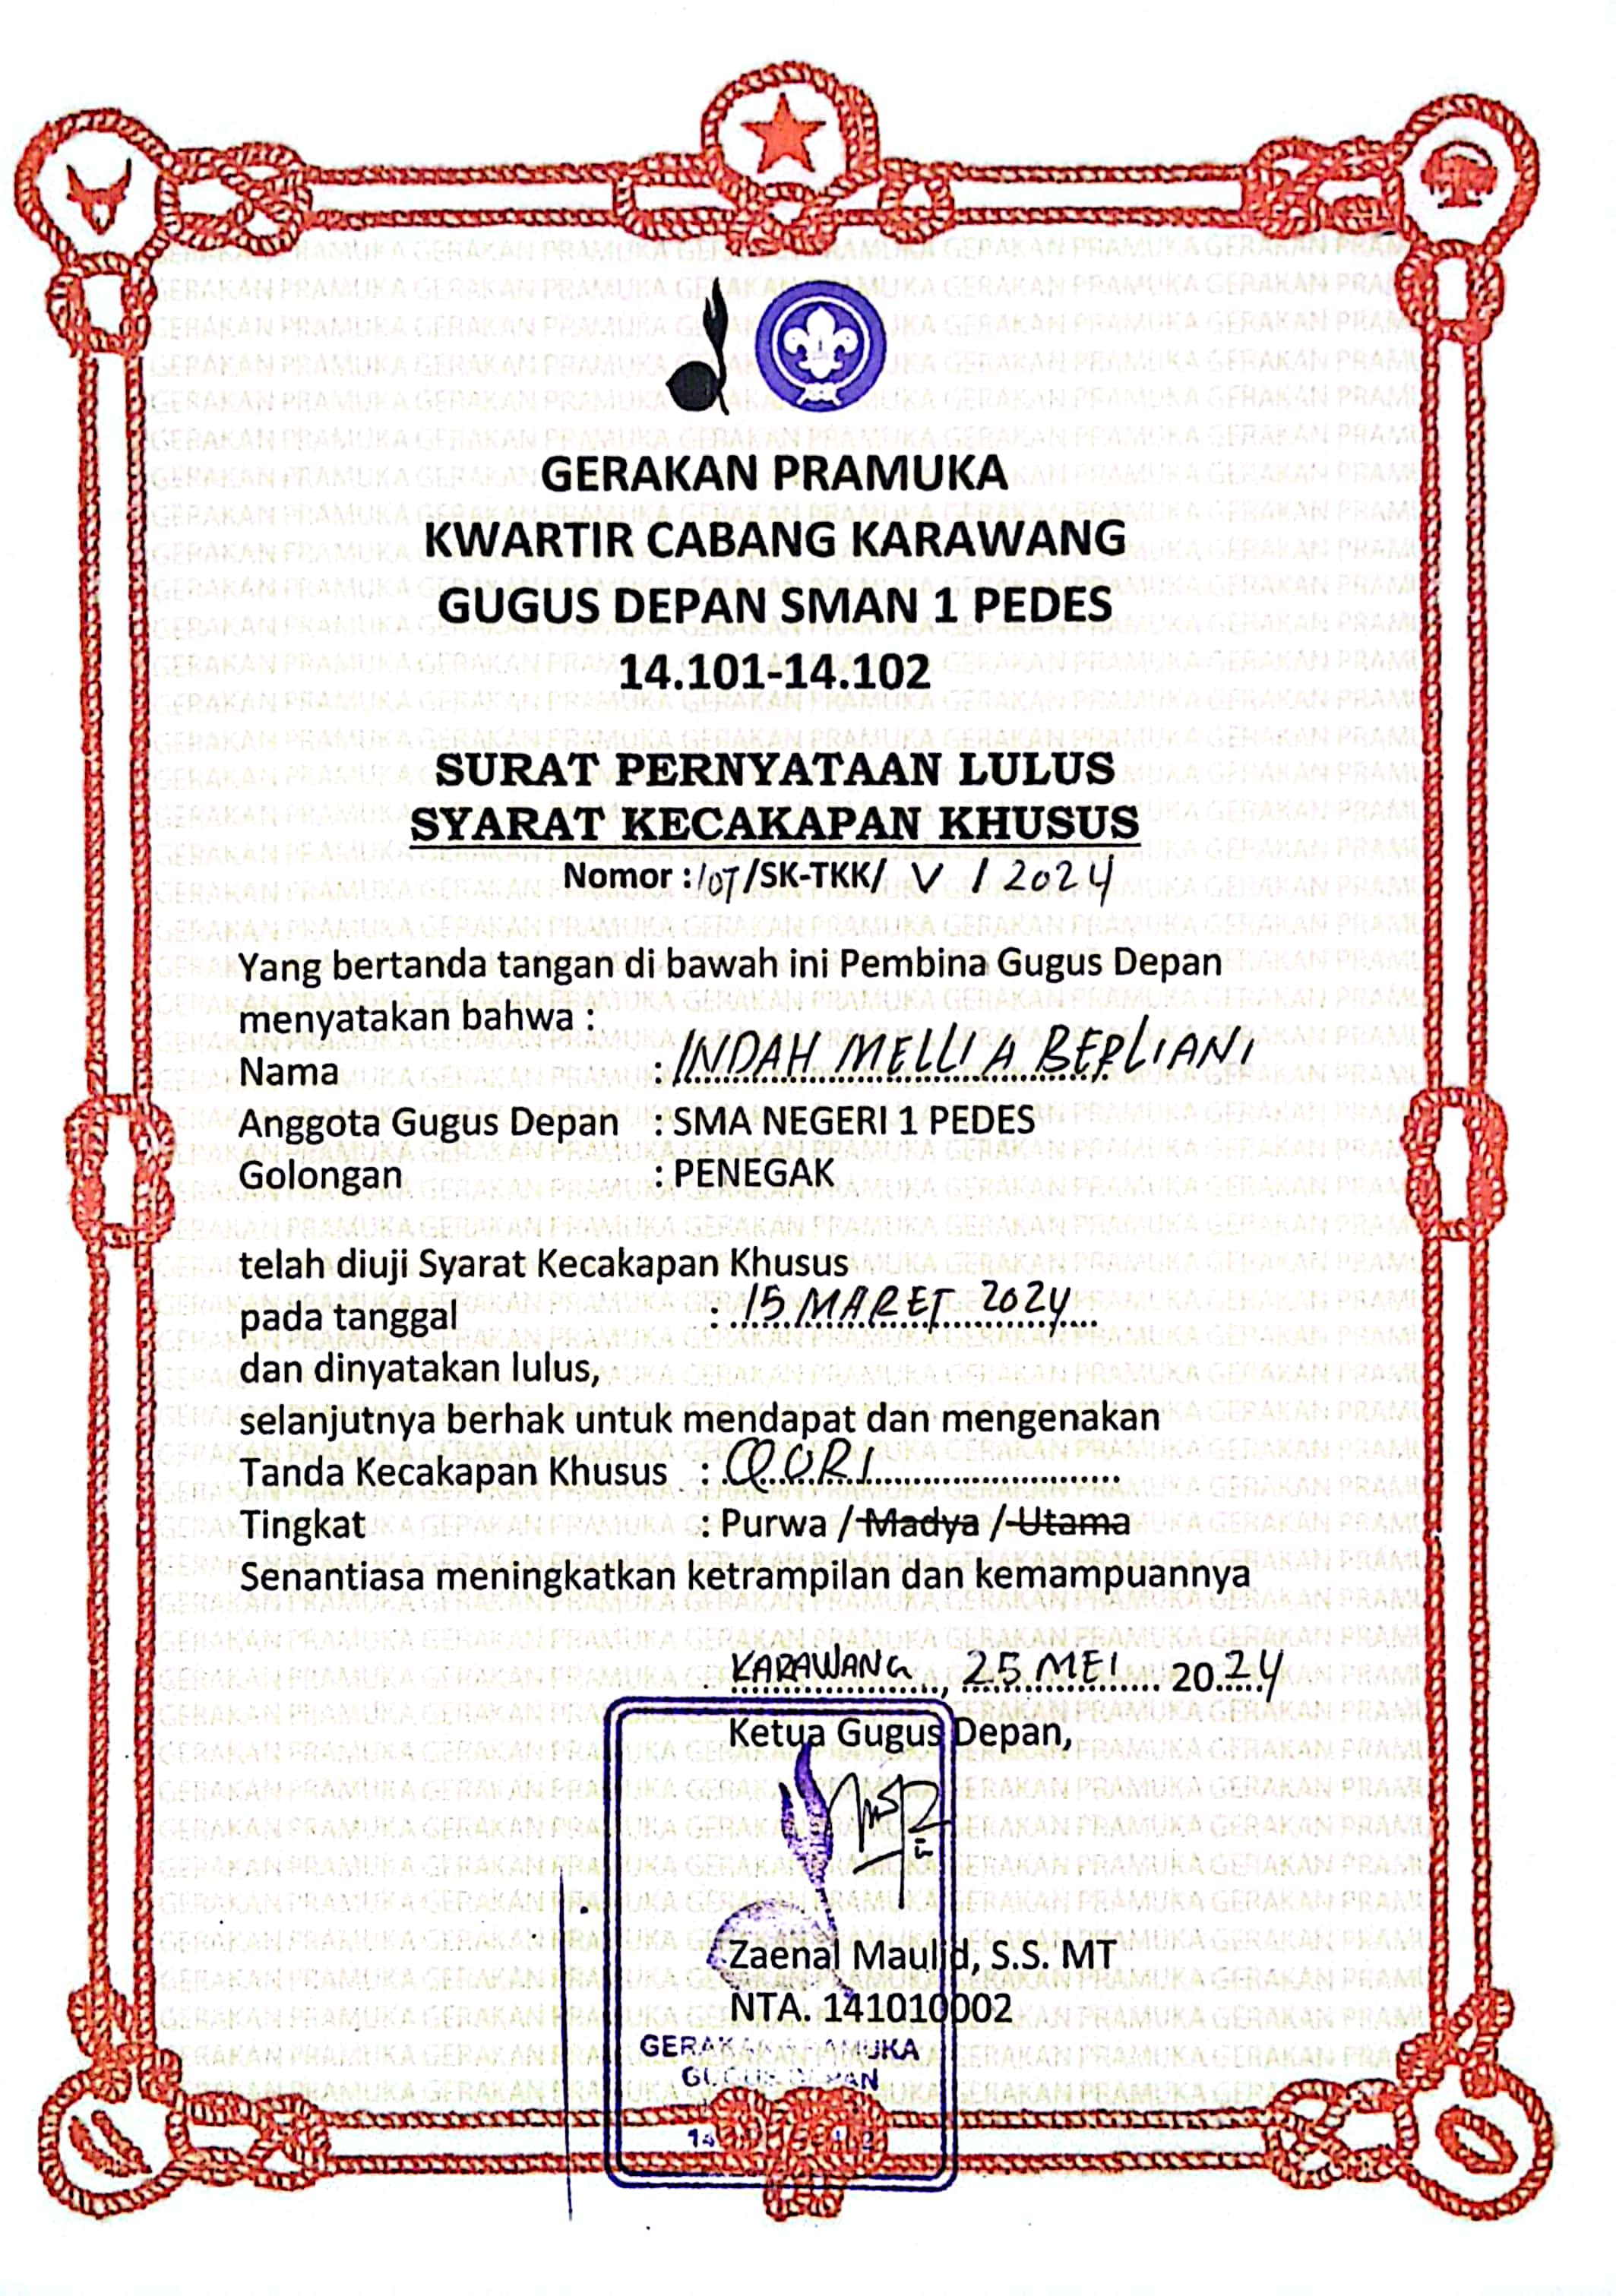 GERAKAN PRAMUKA
KWARTIR CABANG KARAWANG
GUGUS DEPAN SMAN 1 PEDES
14.101-14.102
SURAT PERNYATAAN LULUS
SYARAT KECAKAPAN KHUSUS
Nomor : 107/SK-TKK/ V / 2024
Yang bertanda tangan di bawah ini Pembina Gugus Depan
menyatakan bahwa :
Nama : INDAH MELLIA BERLIANI
Anggota Gugus Depan : SMA NEGERI 1 PEDES
Golongan : PENEGAK
telah diuji Syarat Kecakapan Khusus
pada tanggal : 15 MARET 2024
dan dinyatakan lulus,
selanjutnya berhak untuk mendapat dan mengenakan
Tanda Kecakapan Khusus : QORI
Tingkat : Purwa / Madya / Utama
Senantiasa meningkatkan ketrampilan dan kemampuannya
KARAWANG, 25 MEI 2024
Ketua Gugus Depan,
Zaenal Maulid, S.S. MT
NTA. 141010002
GERAKAN PRAMUKA
GUGUS DEPAN